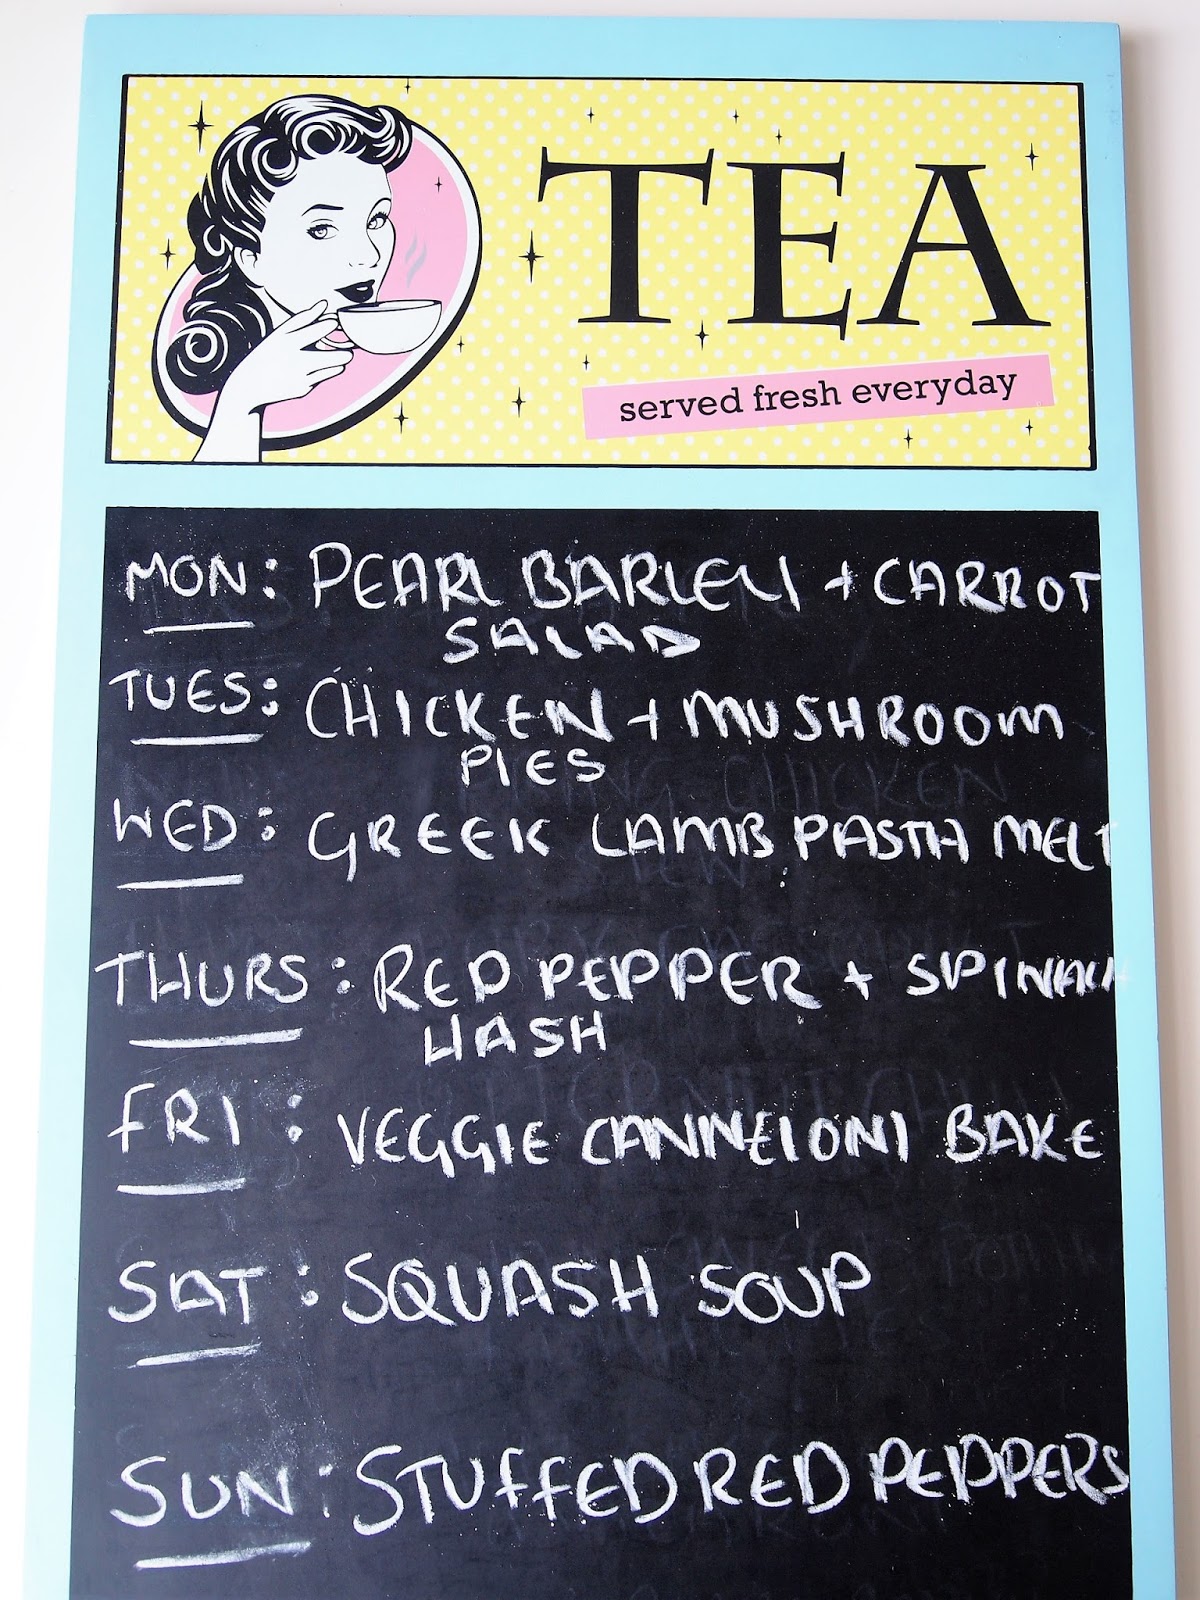 TEA
served fresh everyday
MON: PEARL BARLEY + CARROT
SALAD
TUES: CHICKEN + MUSHROOM
PIES
WED: GREEK LAMB PASTA MELT
THURS: RED PEPPER + SPINACH
HASH
FRI: VEGGIE CANNELONI BAKE
SAT: SQUASH SOUP
SUN: STUFFED RED PEPPERS